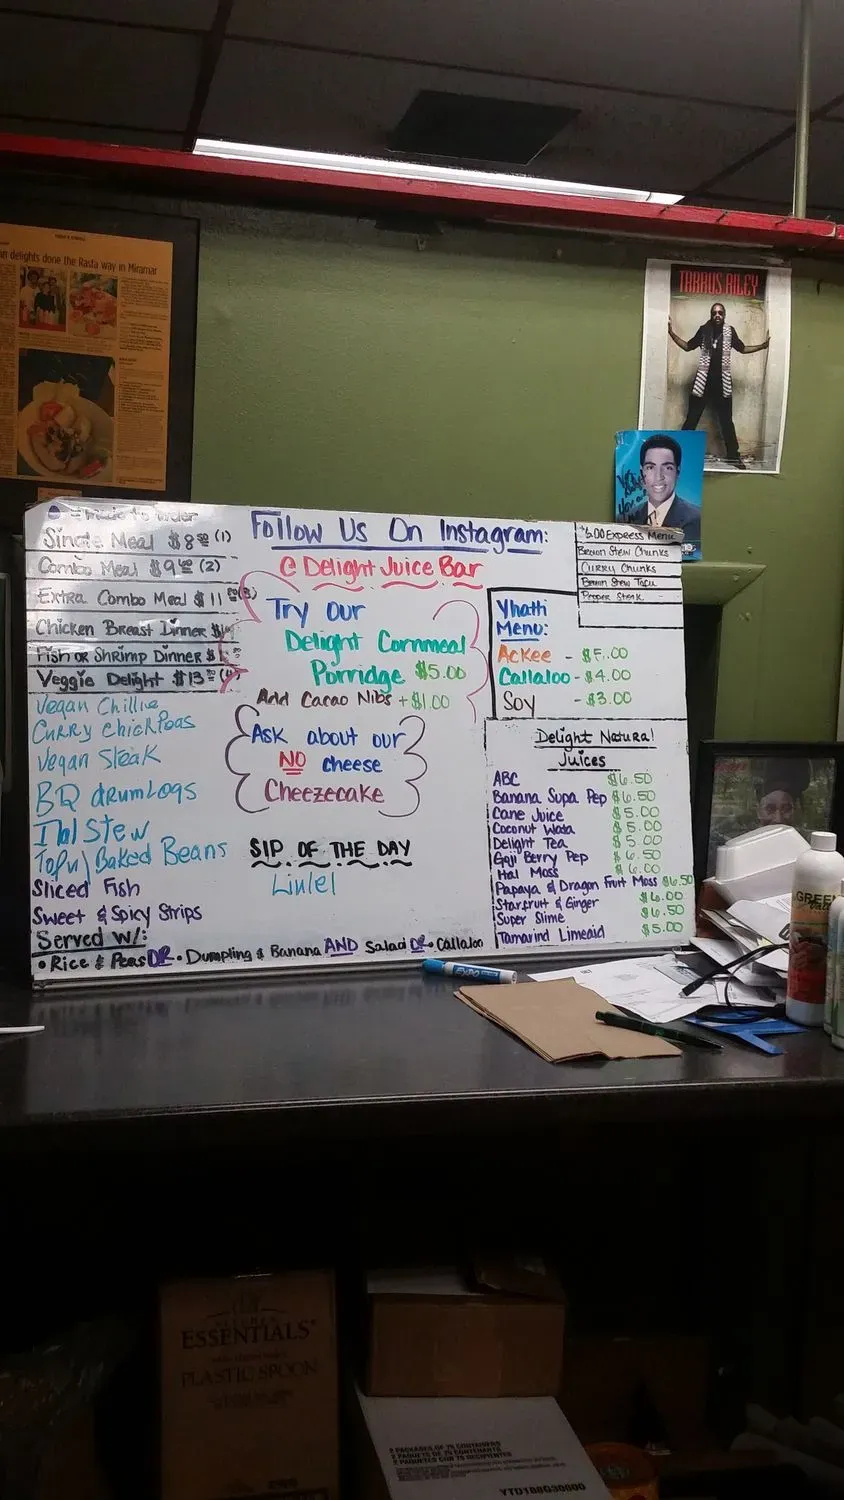 n delights done the Rasta way in Miramar
TARRUS RILEY
= made to order
Single Meal $8 (1)
Combo Meal $9 (2)
Extra Combo Meal $11
Chicken Breast Dinner
Fish or Shrimp Dinner
Veggie Delight $13
Vegan Chillie
Curry Chickpeas
Vegan Steak
BQ drumlogs
Ital Stew
Tofu Baked Beans
Sliced Fish
Sweet & Spicy Strips
Served w/:
• Rice & Peas OR • Dumpling & Banana AND Salad OR • Callaloo
Follow Us On Instagram:
@ Delight Juice Bar
Try our
Delight Cornmeal
Porridge $5.00
Add Cacao Nibs +$1.00
Ask about our
NO cheese
Cheezecake
SIP OF THE DAY
Linlel
$6.00 Express Menu
Brown Stew Chunks
Curry Chunks
Brown Stew Tofu
Pepper Steak
Yhatti
Menu:
Ackee -
Callaloo - $4.00
Soy - $3.00
Delight Natural
Juices
ABC $6.50
Banana Supa Pep $6.50
Cane Juice $5.00
Coconut Wata $5.00
Delight Tea $5.00
Goji Berry Pep $6.50
Moss $6.00
Papaya & Dragon Fruit Moss $6.50
Starfruit & Ginger $6.00
Super Slime $6.50
Tamarind Limeaid $5.00
EXPO
GREEN
ESSENTIALS
PLASTIC SPOON
2 PACKAGES OF 75 CONTAINERS
2 PAQUETS DE 75 CONTENANTS
2 PAQUETS CON 75 RECIPIENTES
YTD188G30000